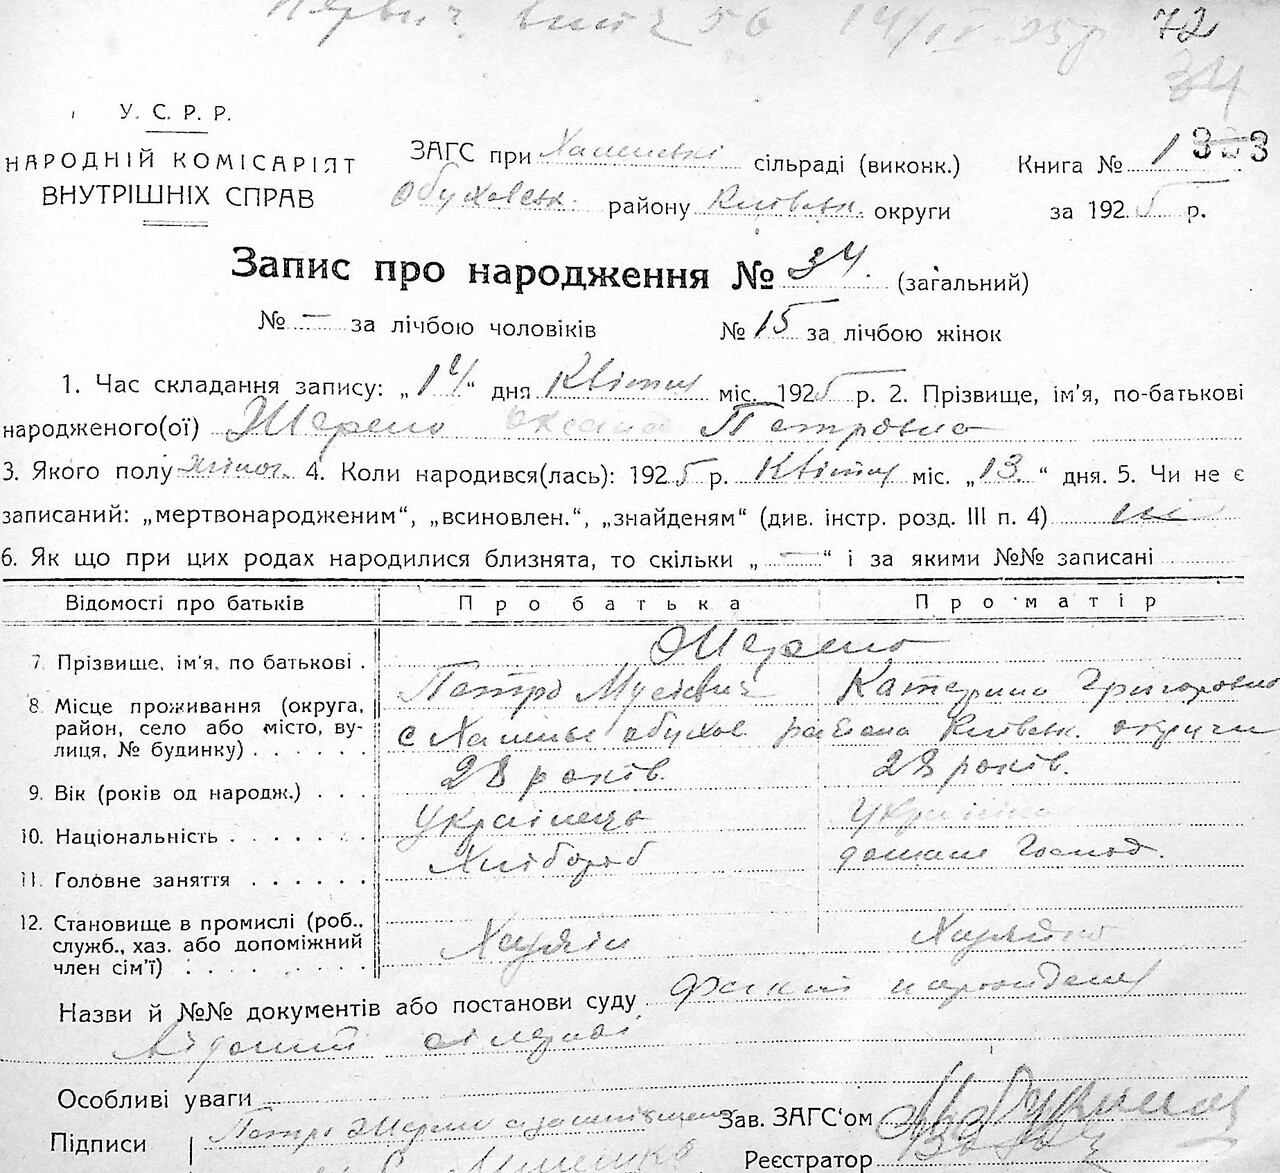 72
34
У. С. Р. Р.
НАРОДНІЙ КОМІСАРІЯТ
ВНУТРІШНІХ СПРАВ
ЗАГС при сільраді (виконк.) Книга № 1 333
Обуховськ. району Київськ. округи за 1925 р.
Запис про народження № 34. (загальний)
№ — за лічбою чоловіків № 15 за лічбою жінок
1. Час складання запису: „14“ дня Квітня міс. 1925 р. 2. Прізвище, ім'я, по-батькові
народженого(ої) Оксана Петровна
3. Якого полу жіноч. 4. Коли народився(лась): 1925 р. Квітня міс. „13.“ дня. 5. Чи не є
записаний: „мертвонародженим“, „всиновлен.“, „знайденям“ (див. інстр. розд. III п. 4) ні
6. Як що при цих родах народилися близнята, то скільки „—“ і за якими №№ записані
Відомості про батьків Про батька Про матір
7. Прізвище, ім'я, по батькові .
Петро Мусієвич Катерина Григоровна
8. Місце проживання (округа, район, село або місто, вулиця, № будинку) . . . . .
с Обухов району Київськ. округи
9. Вік (років од народж.) . . . 28 років. 28 років.
10. Національність . . . . . . . Українець Українка
11. Головне заняття . . . . . . Хлібороб домашн Господ.
12. Становище в промислі (роб., служб., хаз. або допоміжний член сім'ї) . . . . . . . . Хазяїн Хазяйка
Назви й №№ документів або постанови суду.
Особливі уваги
Підписи Петро Зав. ЗАГС'ом
Реєстратор